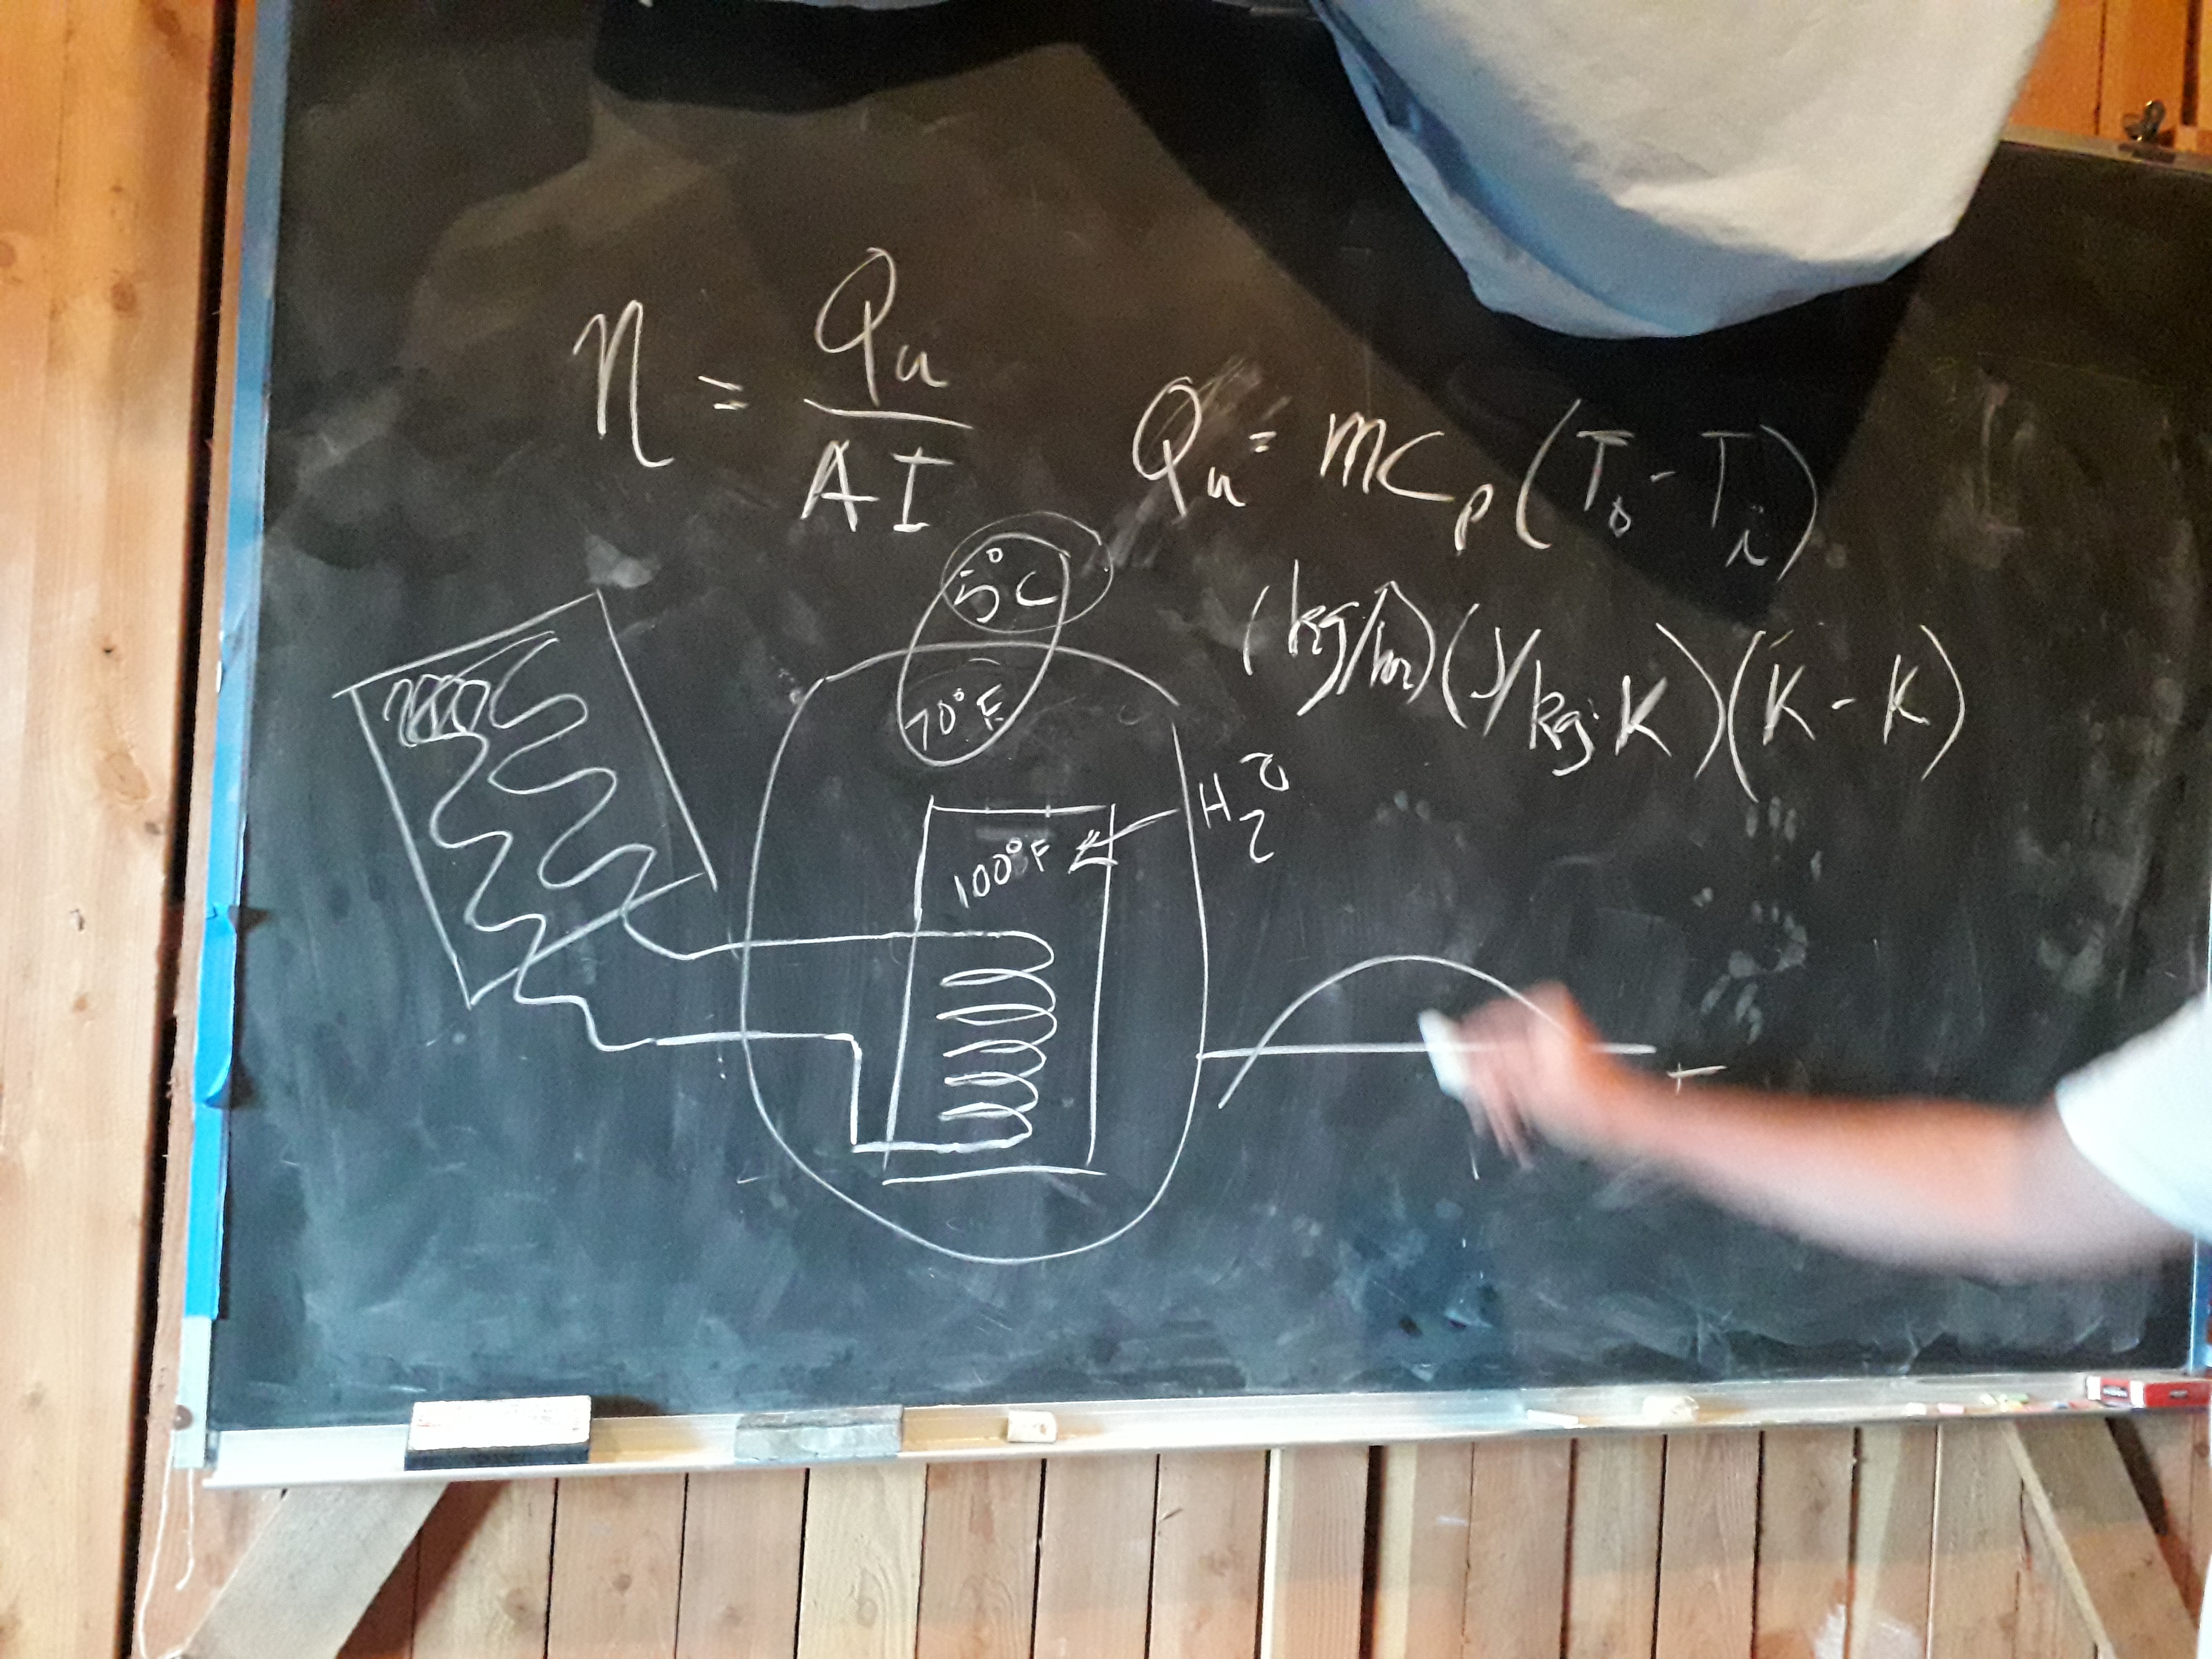 η = Qu / AI
Qu = mCp (To - Ti)
(kg/hr)(J/kg·K)(K - K)
5°C
70°F
H2O
100°F
T